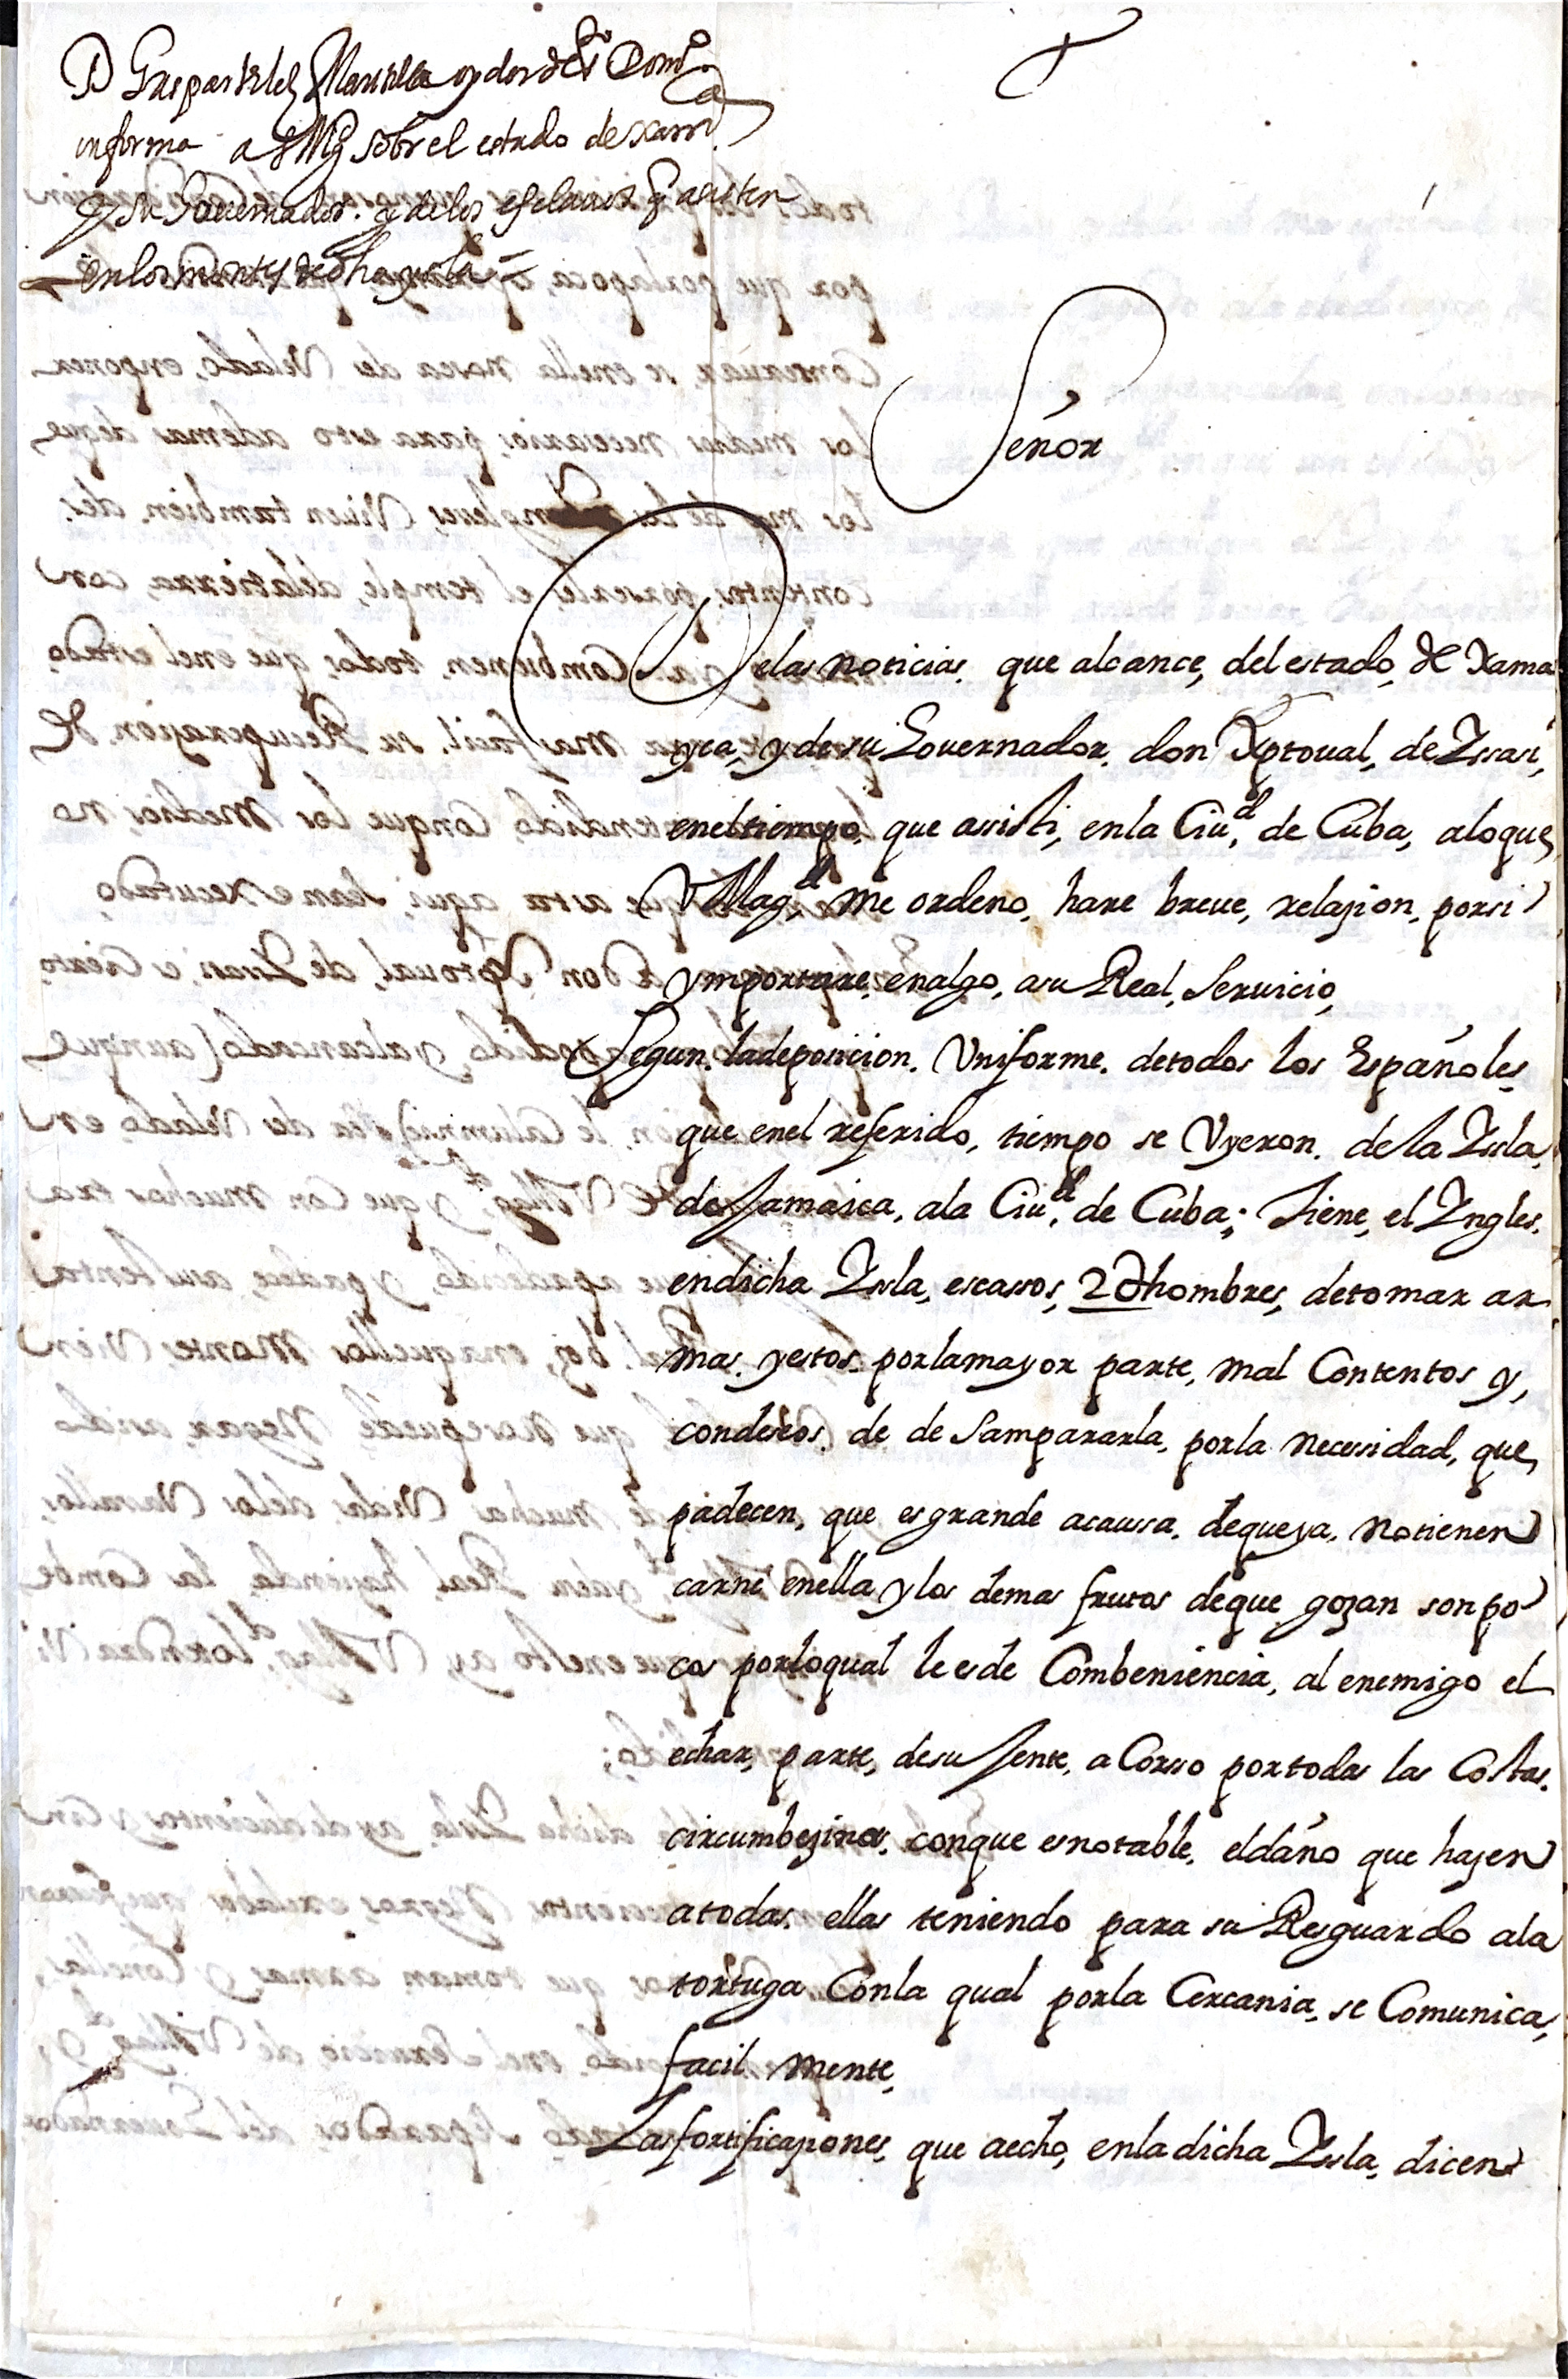 D Gaspar Velez Mantilla oydor de Sto Domo
informa a S Mgd sobre el estado de Xamca
y su Gouernador. y de los esclauos q asisten
en los montes de dha ysla =
Señor
De las noticias. que alcance, del estado, de Xama
yca, y de su Gouernador, don Xptoual, de Issasi,
enel tiempo, que assisti, en la Ciud, de Cuba, alo que,
V Magd, me ordeno, hare breue, relazion, por si
ymportare, en algo, a su Real, Seruicio,
Segun. la deposicion. Vniforme. de todos los Españoles,
que enel referido, tiempo se Vyeron. de la Issla,
de Jamaica, ala Ciud, de Cuba,; tiene, el Yngles.
en dicha Issla, escassos, 2U hombres, de tomar ar
mas. y estos. por la mayor parte, mal Contentos y,
con deseos. de de Sampararla, por la necessidad, que,
padecen, que es grande acausa. de que ya. no tienen
carne enella y los demas frutos de que gozan son po
cos por lo qual le es de Combeniencia, al enemigo el
echar, parte, de su Jente, a Corso por todas las Costas.
circumbezinas. con que es notable, el daño que hazen
a todas. ellas teniendo para su Resguardo ala
tortuga Con la qual por la Cercania, se Comunica,
facil mente,
Las fortificaziones, que a echo, en la dicha Issla, dicen